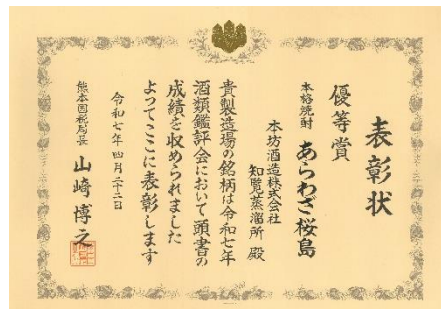 表彰状
優等賞
本格焼酎 あらわざ桜島
本坊酒造株式会社
知覧蒸溜所 殿
貴製造場の銘柄は令和七年
酒類鑑評会において頭書の
成績を収められました
よってここに表彰します
令和七年四月二十二日
熊本国税局長 山崎博之